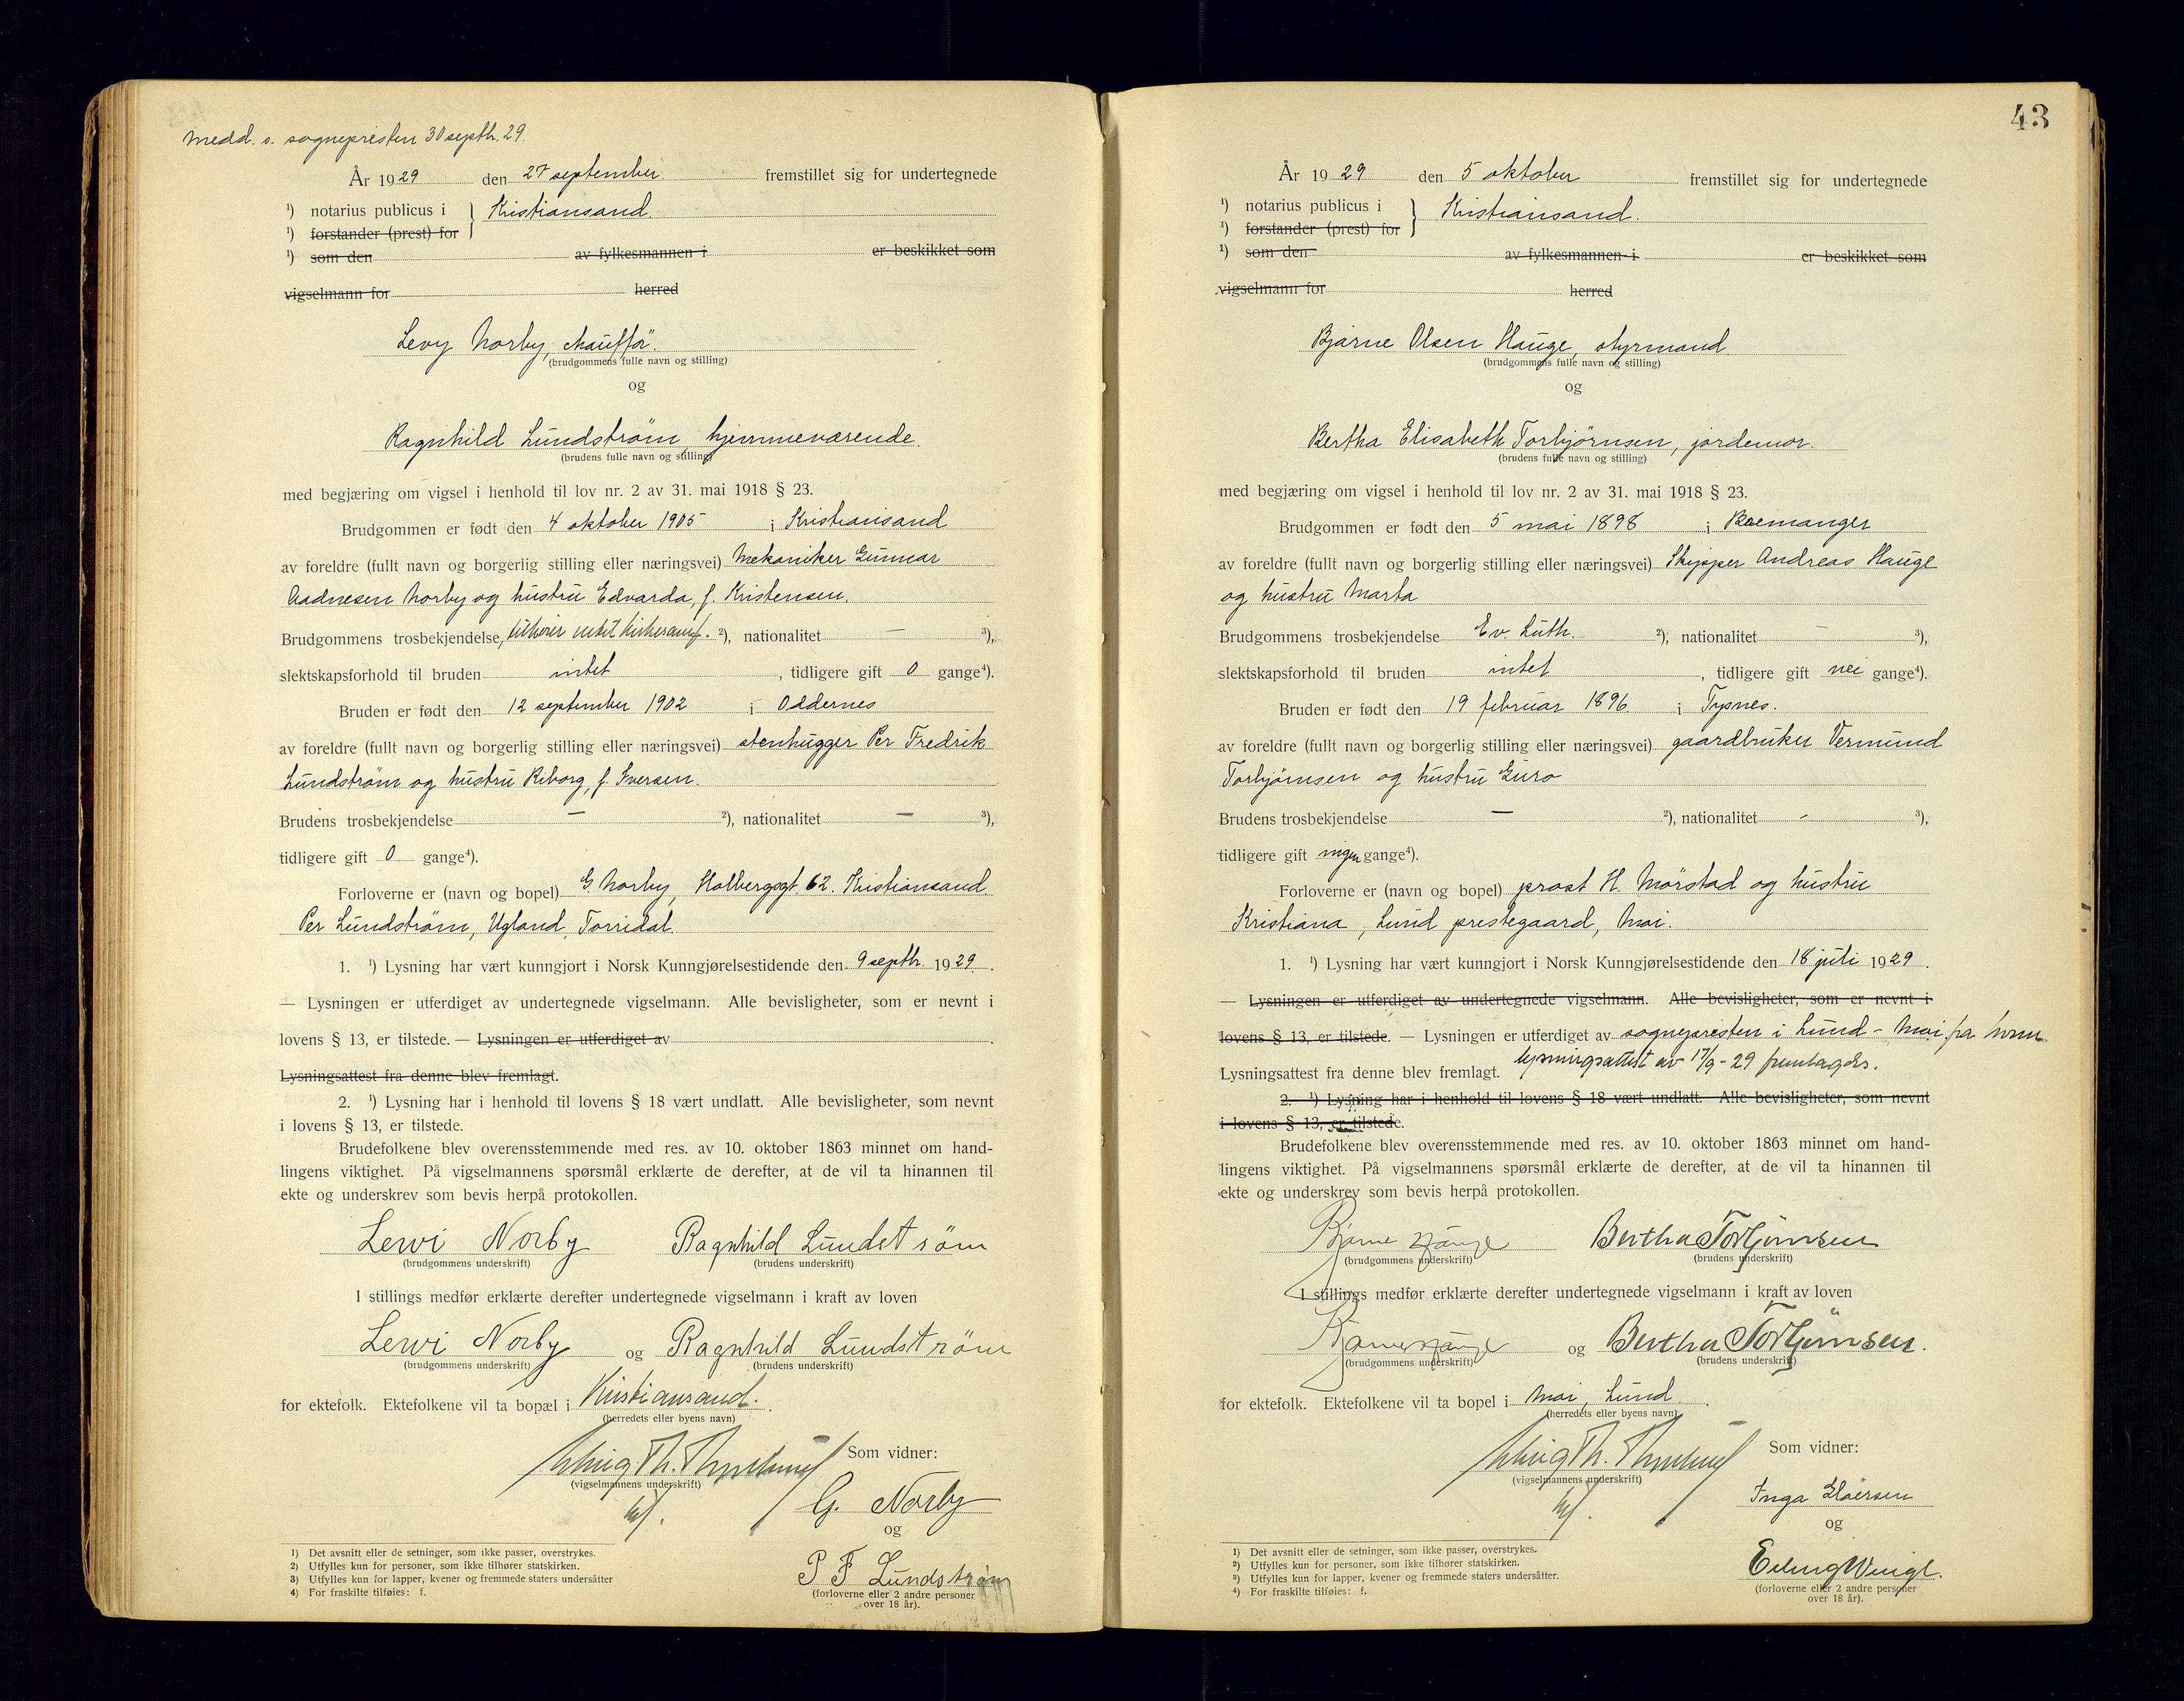 medd. s. sognepresten 30 septbr. 29.
År 1929 den 27 september fremstillet sig for undertegnede
¹) notarius publicus i } Kristiansand.
¹) forstander (prest) for
¹) som den av fylkesmannen i er beskikket som
vigselmann for herred
Levy Norby, chauffør.
(brudgommens fulle navn og stilling)
og
Ragnhild Lundstrøm, hjemmeværende.
(brudens fulle navn og stilling)
med begjæring om vigsel i henhold til lov nr. 2 av 31. mai 1918 § 23.
Brudgommen er født den 4 oktober 1905 i Kristiansand
av foreldre (fullt navn og borgerlig stilling eller næringsvei) Mekaniker Gunnar
Aadnesen Norby og hustru Edvarda, f. Kristensen.
Brudgommens trosbekjendelse, tilhører intet kirkesamf. ²), nationalitet — ³),
slektskapsforhold til bruden intet, tidligere gift 0 gange⁴).
Bruden er født den 12 september 1902 i Oddernes
av foreldre (fullt navn og borgerlig stilling eller næringsvei) stenhugger Per Fredrik
Lundstrøm og hustru Riborg, f. Iversen.
Brudens trosbekjendelse — ²), nationalitet — ³),
tidligere gift 0 gange⁴).
Forloverne er (navn og bopel) G. Norby, Holbergsgt. 62. Kristiansand.
Per Lundstrøm, Ugland, Torridal.
1. ¹) Lysning har vært kunngjort i Norsk Kunngjørelsestidende den 9 septbr. 1929.
— Lysningen er utferdiget av undertegnede vigselmann. Alle bevisligheter, som er nevnt i
lovens § 13, er tilstede. — Lysningen er utferdiget av
Lysningsattest fra denne blev fremlagt.
2. ¹) Lysning har i henhold til lovens § 18 vært undlatt. Alle bevisligheter, som nevnt
i lovens § 13, er tilstede.
Brudefolkene blev overensstemmende med res. av 10. oktober 1863 minnet om hand-
lingens viktighet. På vigselmannens spørsmål erklærte de derefter, at de vil ta hinannen til
ekte og underskrev som bevis herpå protokollen.
Lewi Norby Ragnhild Lundstrøm
(brudgommens underskrift) (brudens underskrift)
I stillings medfør erklærte derefter undertegnede vigselmann i kraft av loven
Lewi Norby og Ragnhild Lundstrøm
(brudgommens underskrift) (brudens underskrift)
for ektefolk. Ektefolkene vil ta bopæl i Kristiansand.
(herredets eller byens navn)
Som vidner:
(vigselmannens underskrift)
G. Norby
og
P F Lundstrøm
(forloverne eller 2 andre personer
over 18 år).
1) Det avsnitt eller de setninger, som ikke passer, overstrykes.
2) Utfylles kun for personer, som ikke tilhører statskirken.
3) Utfylles kun for lapper, kvener og fremmede staters undersåtter
4) For fraskilte tilføies: f.
43
År 1929 den 5 oktober fremstillet sig for undertegnede
¹) notarius publicus i } Kristiansand.
¹) forstander (prest) for
¹) som den av fylkesmannen i er beskikket som
vigselmann for herred
Bjarne Olsen Hauge, styrmand
(brudgommens fulle navn og stilling)
og
Bertha Elisabeth Torbjørnsen, jordemor.
(brudens fulle navn og stilling)
med begjæring om vigsel i henhold til lov nr. 2 av 31. mai 1918 § 23.
Brudgommen er født den 5 mai 1898 i Bremanger
av foreldre (fullt navn og borgerlig stilling eller næringsvei) Skipper Andreas Hauge
og hustru Marta
Brudgommens trosbekjendelse Ev. Luth. ²), nationalitet — ³),
slektskapsforhold til bruden intet, tidligere gift nei gange⁴).
Bruden er født den 19 februar 1896. i Tysnes.
av foreldre (fullt navn og borgerlig stilling eller næringsvei) gaardbruker Vermund
Torbjørnsen og hustru Guro
Brudens trosbekjendelse — ²), nationalitet - ³),
tidligere gift ingen gange⁴).
Forloverne er (navn og bopel) prost H. Mørstad og hustru
Kristiana, Lund prestegaard, Moi.
1. ¹) Lysning har vært kunngjort i Norsk Kunngjørelsestidende den 18 juli 1929.
— Lysningen er utferdiget av undertegnede vigselmann. Alle bevisligheter, som er nevnt i
lovens § 13, er tilstede. — Lysningen er utferdiget av sognepresten i Lund - Moi, fra hvem
lysningsattest av 17/9-29 fremlagdes.
Lysningsattest fra denne blev fremlagt.
2. ¹) Lysning har i henhold til lovens § 18 vært undlatt. Alle bevisligheter, som nevnt
i lovens § 13, er tilstede.
Brudefolkene blev overensstemmende med res. av 10. oktober 1863 minnet om hand-
lingens viktighet. På vigselmannens spørsmål erklærte de derefter, at de vil ta hinannen til
ekte og underskrev som bevis herpå protokollen.
Bjarne Hauge Bertha Torbjørnsen
(brudgommens underskrift) (brudens underskrift)
I stillings medfør erklærte derefter undertegnede vigselmann i kraft av loven
Bjarne Hauge og Bertha Torbjørnsen.
(brudgommens underskrift) (brudens underskrift)
for ektefolk. Ektefolkene vil ta bopel i Moi, Lund.
(herredets eller byens navn)
Som vidner:
(vigselmannens underskrift)
Inga
og
Erling
(forloverne eller 2 andre personer
over 18 år).
1) Det avsnitt eller de setninger, som ikke passer, overstrykes.
2) Utfylles kun for personer, som ikke tilhører statskirken.
3) Utfylles kun for lapper, kvener og fremmede staters undersåtter.
4) For fraskilte tilføies: f.